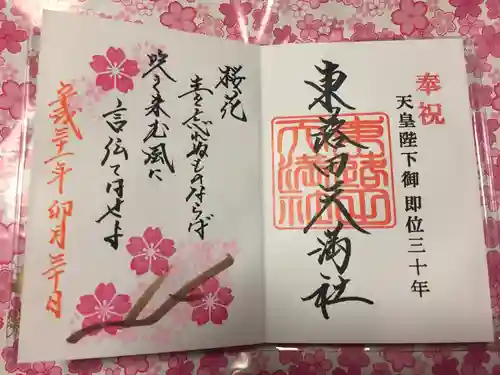 奉祝
天皇陛下御即位三十年
東蕗田天満社
東蕗田
天満社
桜花
主を忘れぬものならば
吹き来む風に
言伝てはせよ
平成三十一年 卯月三十日